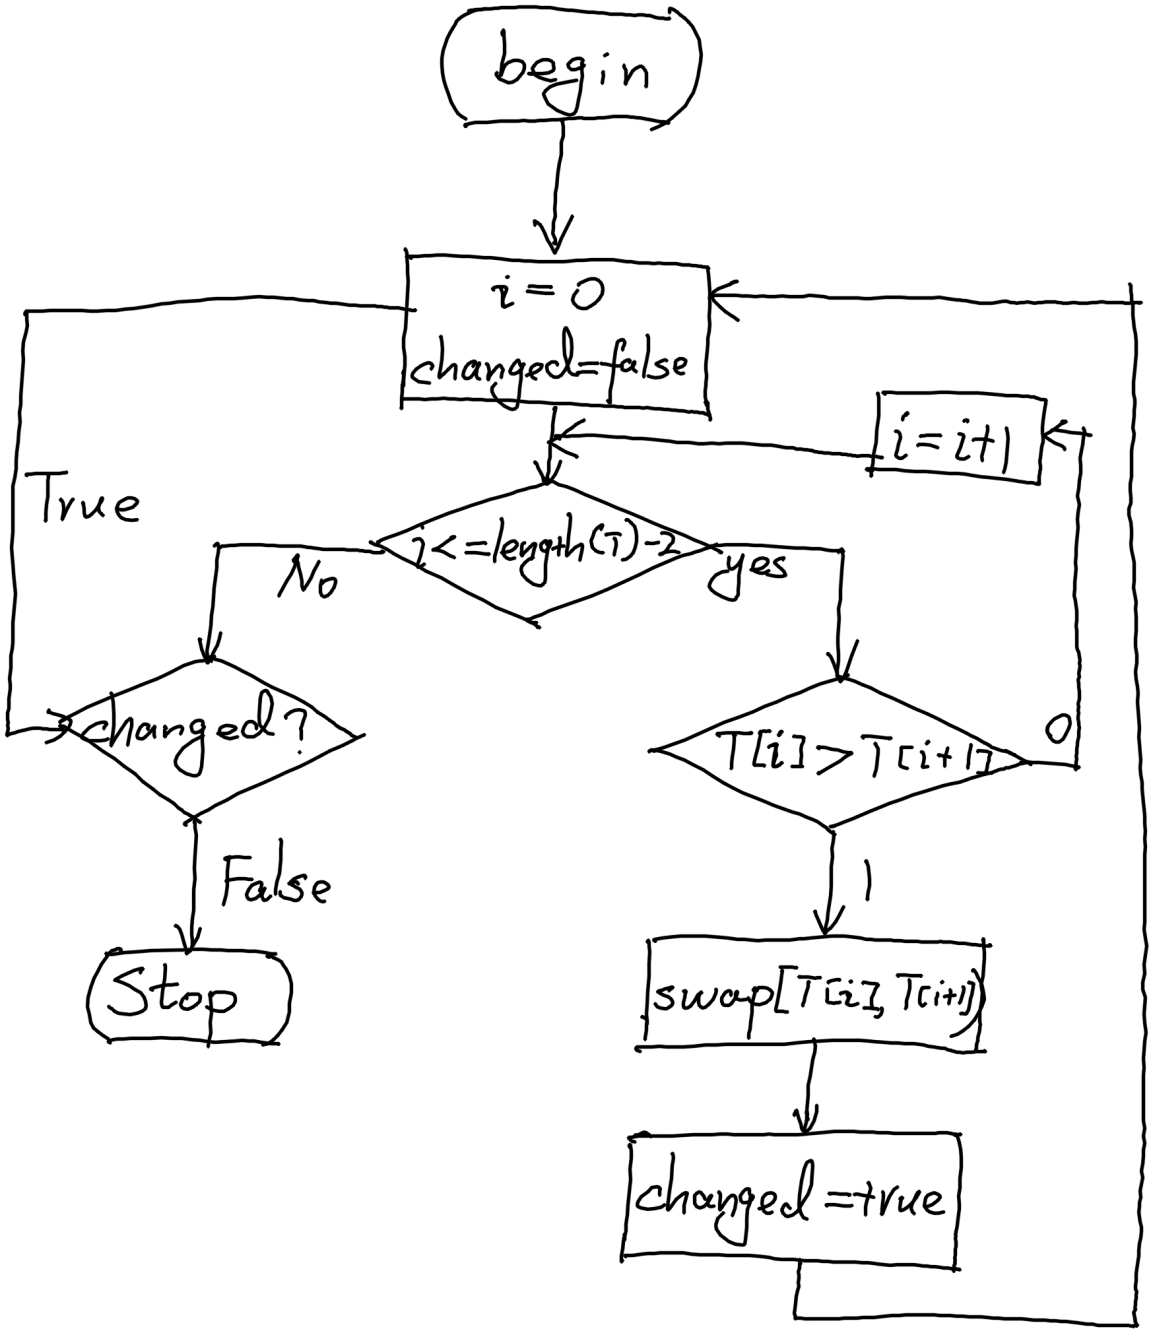 begin
i = 0
changed=false
i = i+1
True
i<=length(T)-2
No
yes
changed?
T[i]>T[i+1]
0
False
1
Stop
swap[T[i], T[i+1])
changed=true